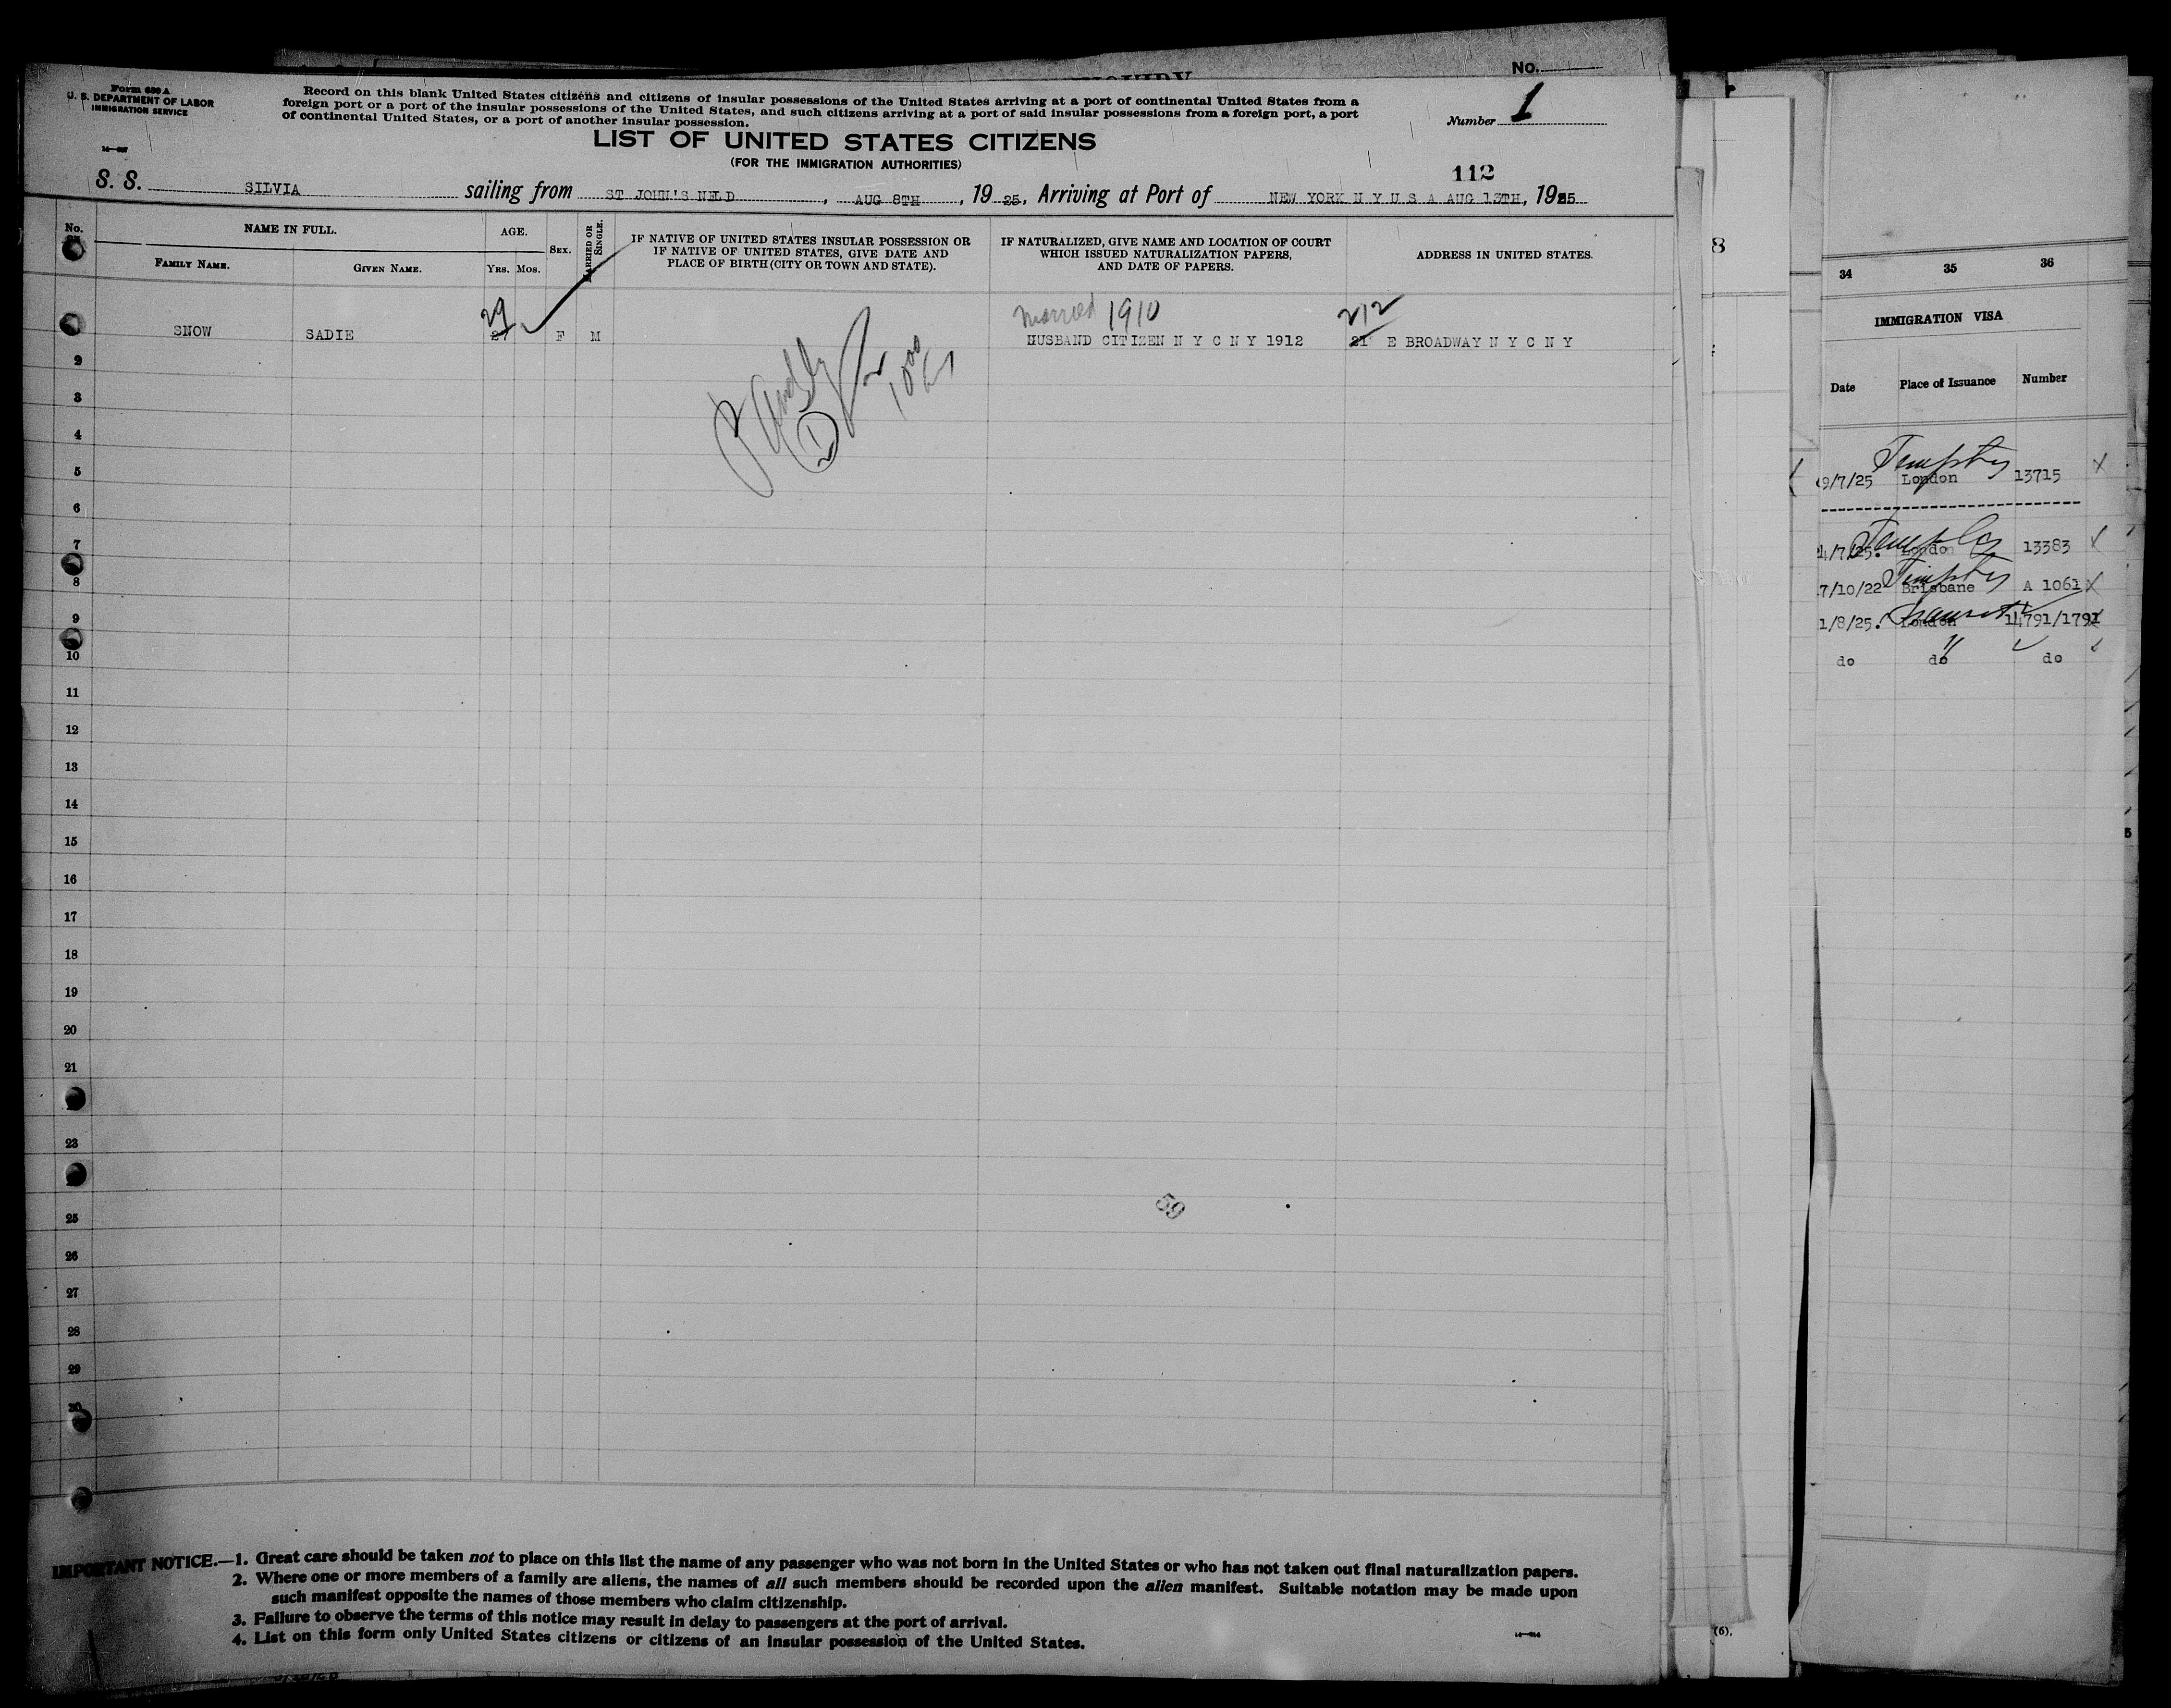 No.
Form 630 A
U. S. DEPARTMENT OF LABOR
IMMIGRATION SERVICE
Record on this blank United States citizens and citizens of insular possessions of the United States arriving at a port of continental United States from a
foreign port or a port of the insular possessions of the United States, and such citizens arriving at a port of said insular possessions from a foreign port, a port
of continental United States, or a port of another insular possession.
Number 1
LIST OF UNITED STATES CITIZENS
(FOR THE IMMIGRATION AUTHORITIES)
112
S. S. SILVIA sailing from ST JOHN'S NFLD, AUG 8TH, 1925, Arriving at Port of NEW YORK N Y U S A AUG 13TH, 1925
No.
NAME IN FULL.
FAMILY NAME.
GIVEN NAME.
AGE.
YRS. MOS.
SEX.
MARRIED OR SINGLE.
IF NATIVE OF UNITED STATES INSULAR POSSESSION OR
IF NATIVE OF UNITED STATES, GIVE DATE AND
PLACE OF BIRTH (CITY OR TOWN AND STATE).
IF NATURALIZED, GIVE NAME AND LOCATION OF COURT
WHICH ISSUED NATURALIZATION PAPERS,
AND DATE OF PAPERS.
ADDRESS IN UNITED STATES.
29 married 1910 212
SNOW SADIE 27 F M HUSBAND CITIZEN N Y C N Y 1912 21 E BROADWAY N Y C N Y
2
3
4
5
6
7
8
9
10
11
12
13
14
15
16
17
18
19
20
21
23
25
26
27
28
29
30
59
IMPORTANT NOTICE.—1. Great care should be taken not to place on this list the name of any passenger who was not born in the United States or who has not taken out final naturalization papers.
2. Where one or more members of a family are aliens, the names of all such members should be recorded upon the alien manifest. Suitable notation may be made upon
such manifest opposite the names of those members who claim citizenship.
3. Failure to observe the terms of this notice may result in delay to passengers at the port of arrival.
4. List on this form only United States citizens or citizens of an insular possession of the United States.
8
(6).
34 35 36
IMMIGRATION VISA
Date Place of Issuance Number
9/7/25 London 13715
4/7/25. London 13383
7/10/22 Brisbane A 1061
1/8/25. London 14791/1791
do do do
5